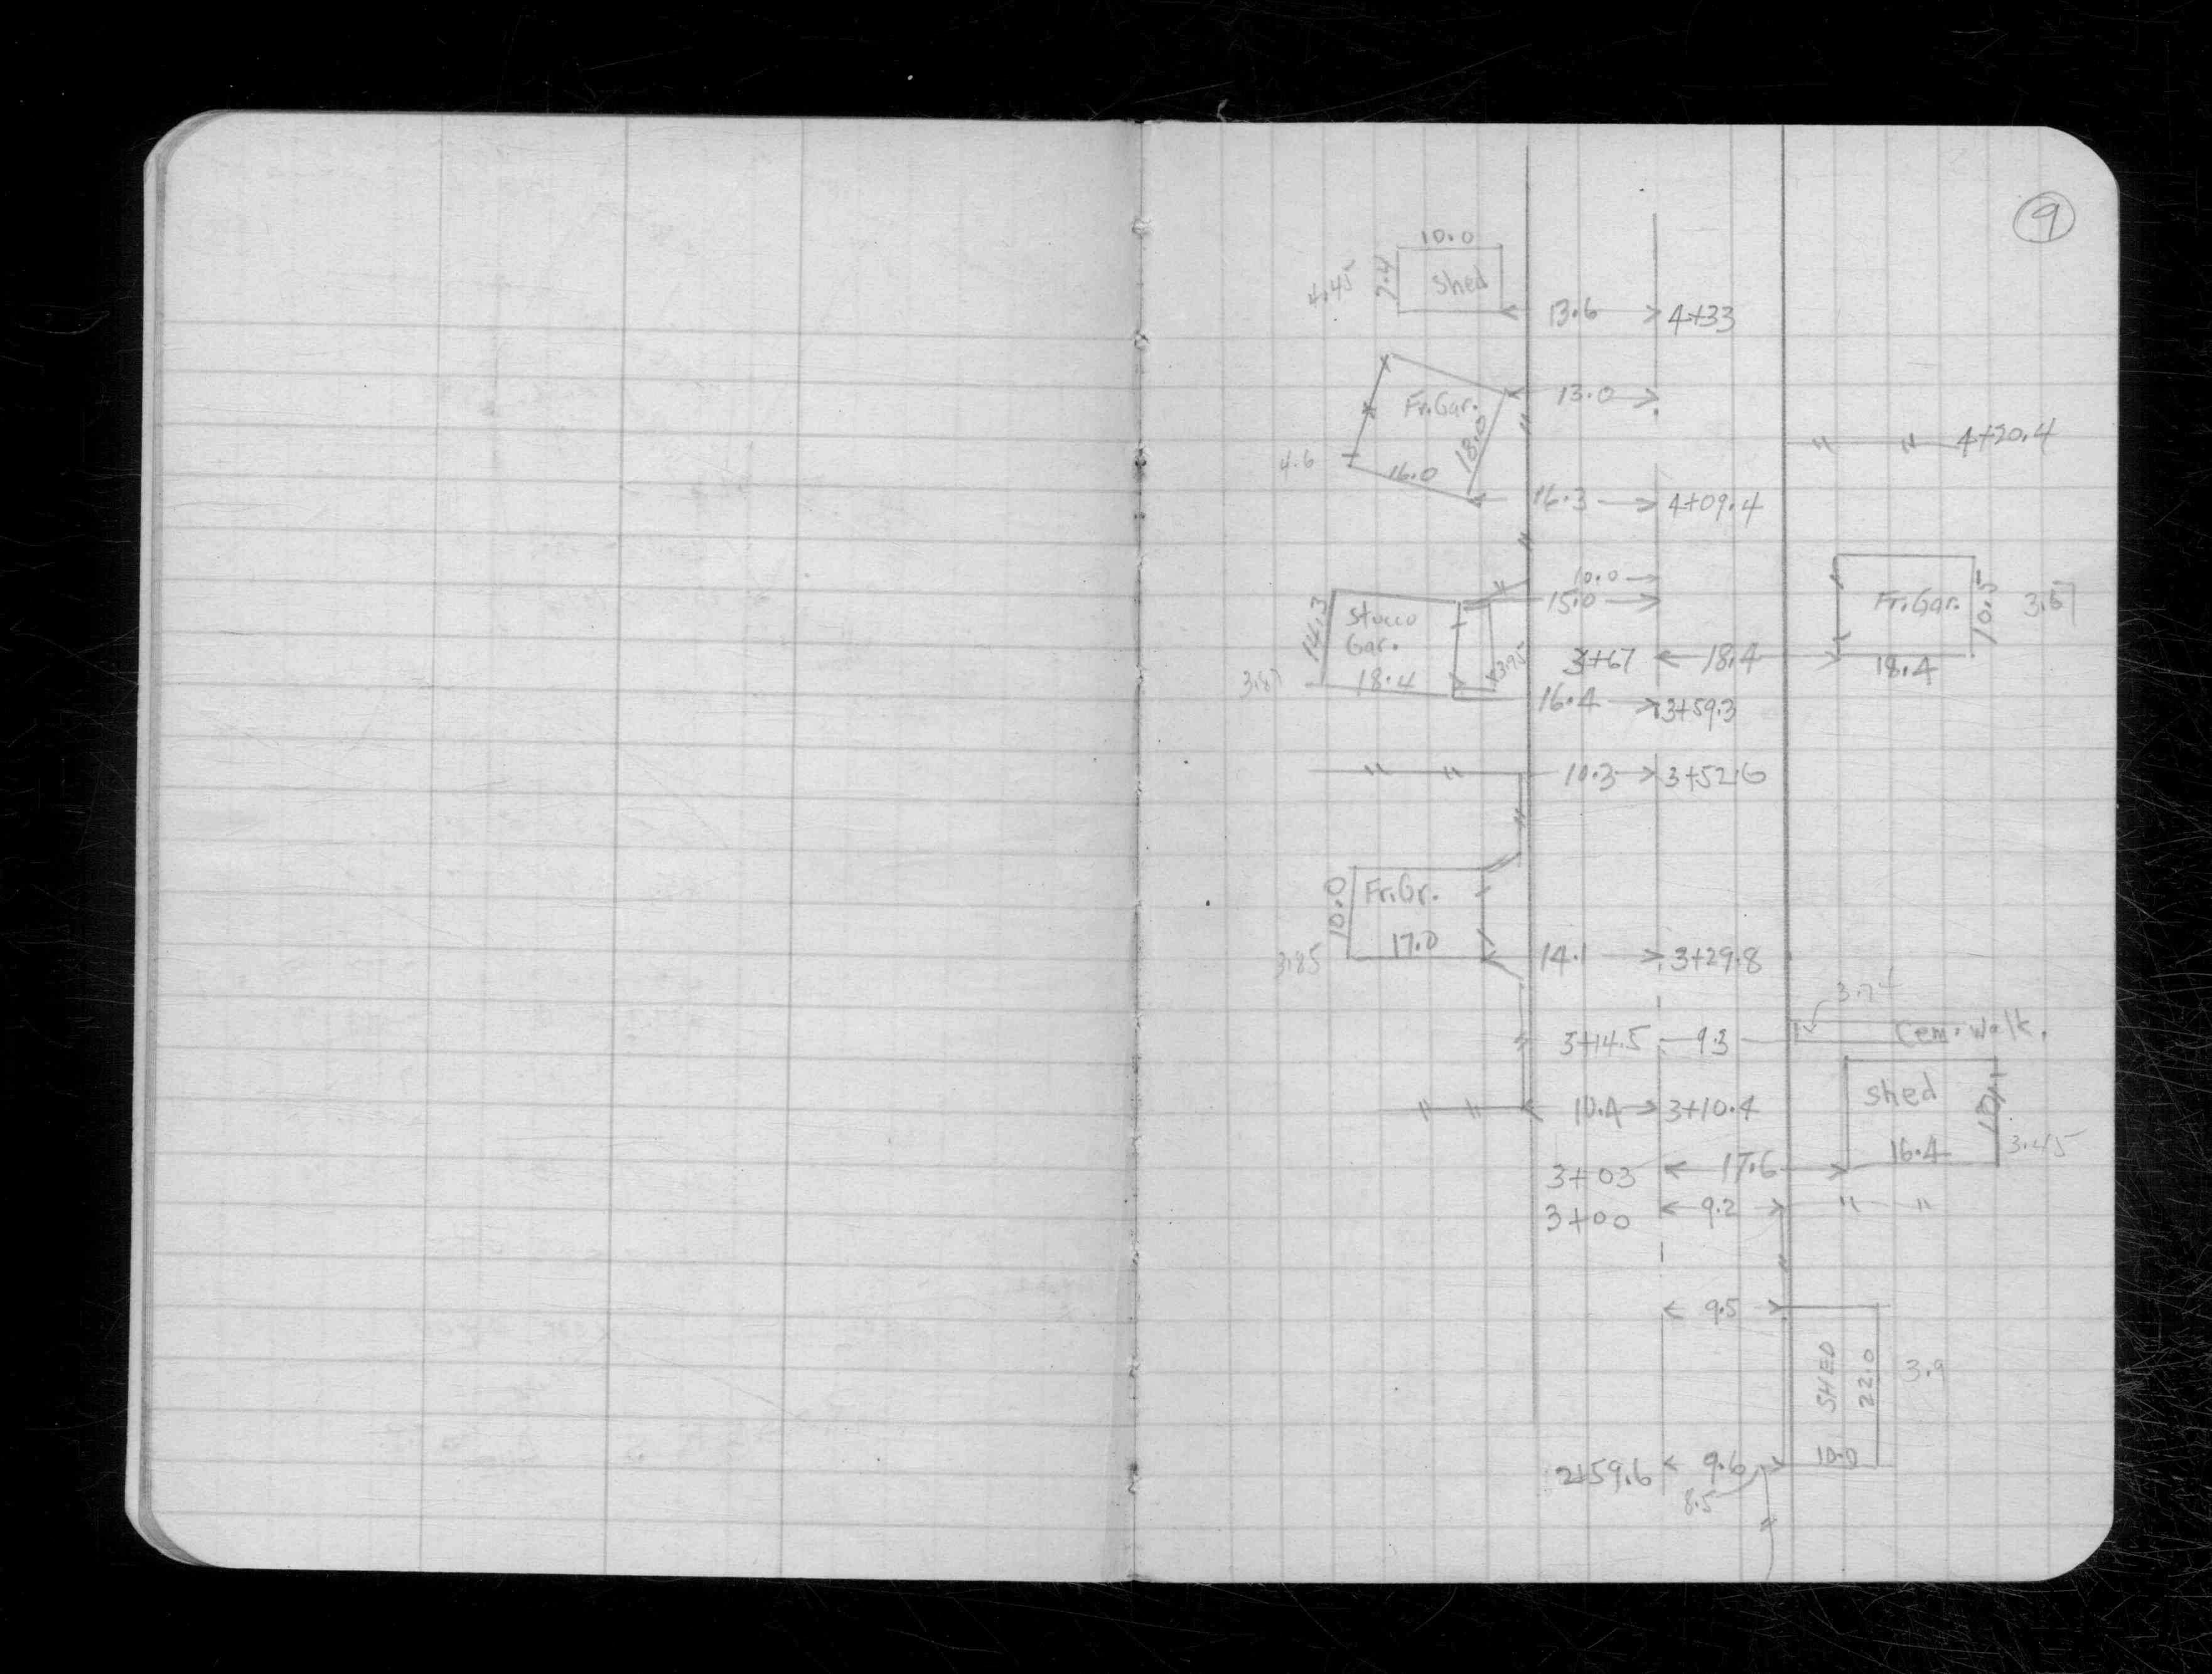 9
10.0
4.45 7.4 Shed
13.6 4+33
Fr.Gar. 13.0
18.0
4+20.4
4.6 16.0
16.3 4+09.4
10.0
15.0
14.3 Stucco Gar.
Fr.Gar. 10.5
3+67 18.4
18.4
18.4 3.95
16.4 3+59.3
10.3 3+52.6
10.0 Fr.Gr.
17.0
3.85 14.1 3+29.8
3+14.5 9.3 Cem. Walk.
Shed 10.1
10.4 3+10.4
16.4 3.45
3+03 17.6
3+00 9.2
9.5
SHED 22.0 3.9
10.0
2+59.6 9.6
8.5